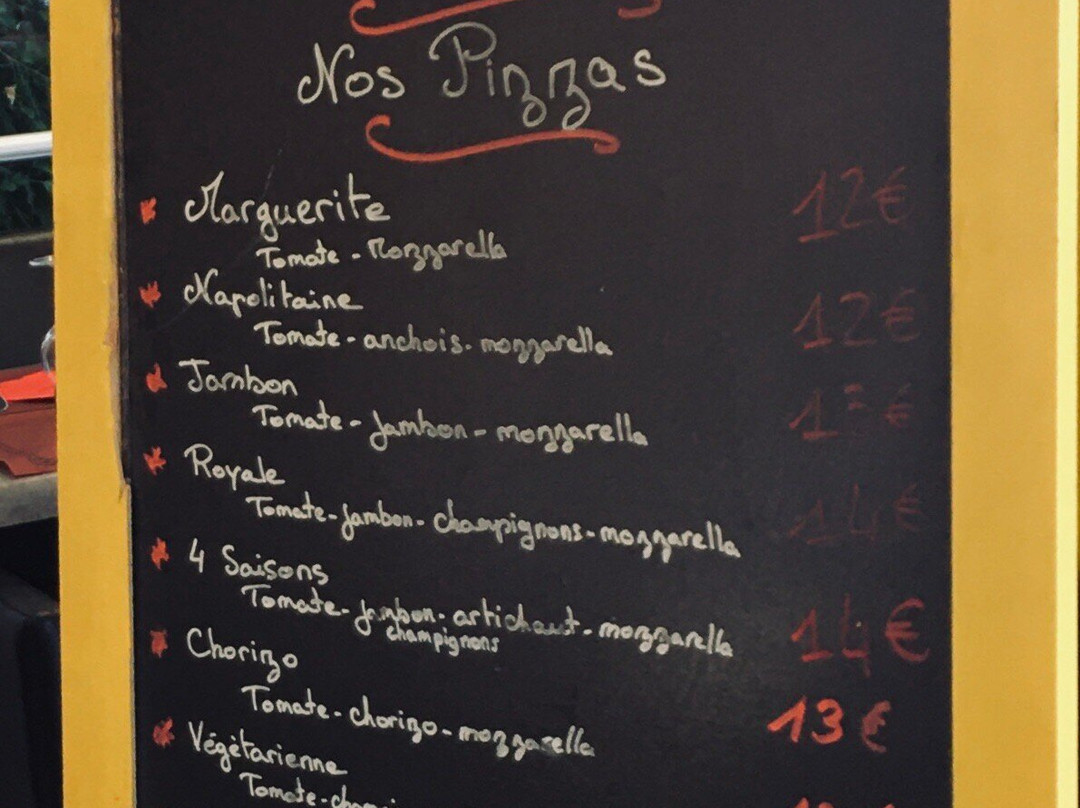 Nos Pizzas
Marguerite 12€
Tomate - Mozzarella
Napolitaine 12€
Tomate - anchois - mozzarella
Jambon €
Tomate - jambon - mozzarella
Royale 14€
Tomate - jambon - champignons - mozzarella
4 Saisons
Tomate - jambon - artichaut - mozzarella 14€
champignons
Chorizo
Tomate - chorizo - mozzarella 13€
Végétarienne